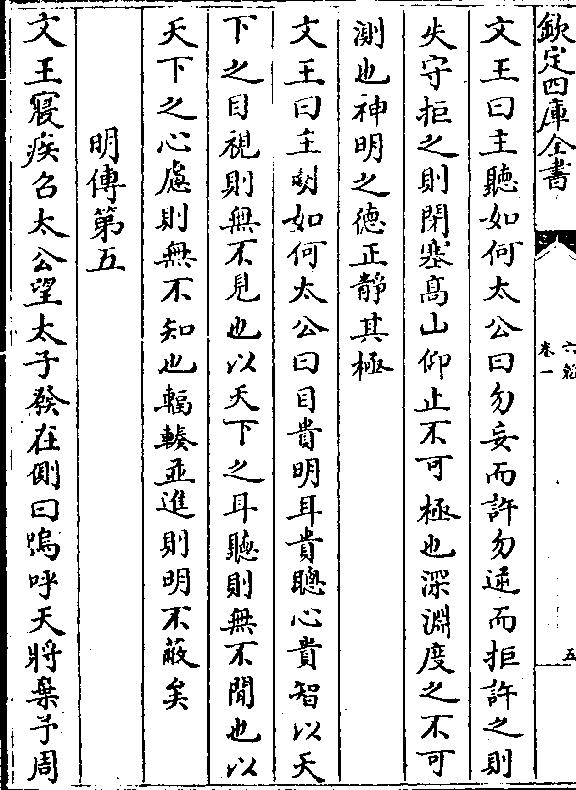 欽定四庫全書
六韜
卷一
五
文王曰主聽如何太公曰勿妄而許勿逆而拒許之則
失守拒之則閉塞髙山仰止不可極也深淵度之不可
測也神明之徳正靜其極
文王曰主明如何太公曰目貴明耳貴聰心貴智以天
下之目視則無不見也以天下之耳聽則無不聞也以
天下之心慮則無不知也輻輳並進則明不蔽矣
明傳第五
文王寢疾召太公望太子發在側曰嗚呼天將棄予周